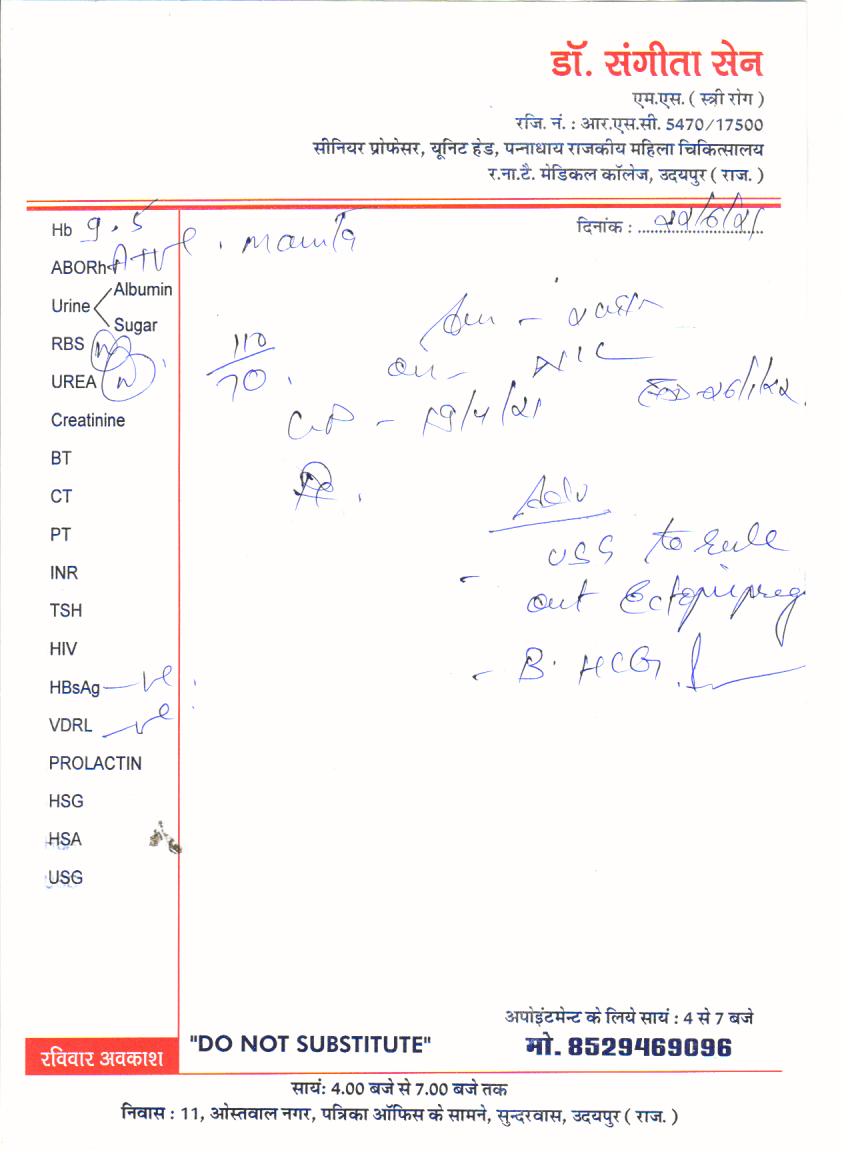 डॉ. संगीता सेन
एम.एस. ( स्त्री रोग )
रजि. नं. : आर.एस.सी. 5470/17500
सीनियर प्रोफेसर, यूनिट हेड, पन्नाधाय राजकीय महिला चिकित्सालय
र.ना.टै. मेडिकल कॉलेज, उदयपुर ( राज. )
दिनांक :
Hb 9.5
ABORh A+ve
Urine Albumin
Sugar
RBS
UREA
Creatinine
BT
CT
PT
INR
TSH
HIV
HBsAg -ve
VDRL -ve
PROLACTIN
HSG
HSA
USG
110/70
Adv
USG to rule
out Ectopic preg
- B. HCG
"DO NOT SUBSTITUTE"
अपोइंटमेन्ट के लिये सायं : 4 से 7 बजे
मो. 8529469096
रविवार अवकाश
सायं: 4.00 बजे से 7.00 बजे तक
निवास : 11, ओस्तवाल नगर, पत्रिका ऑफिस के सामने, सुन्दरवास, उदयपुर ( राज. )